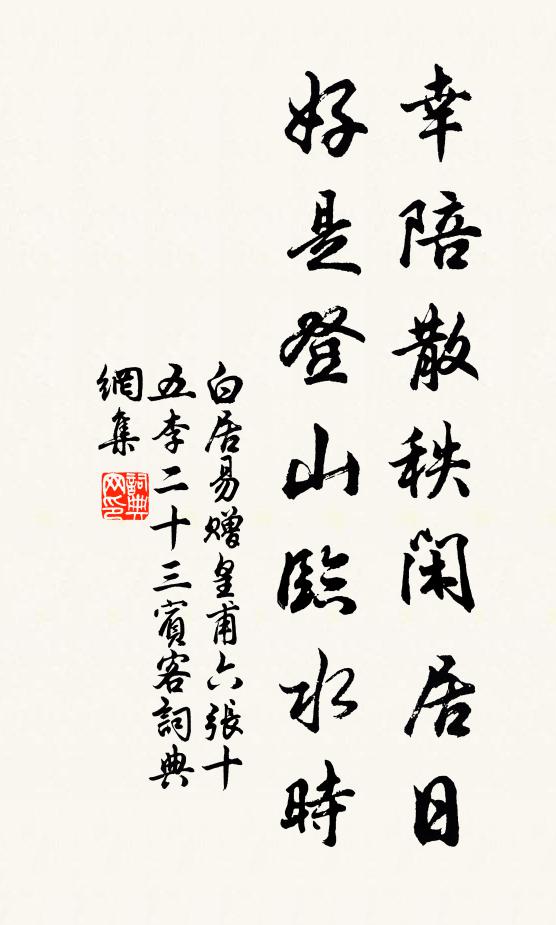 幸陪散秩閑居日
好是登山臨水時
白居易贈皇甫六張十
五李二十三賓客詞典
網集
詞典
网印